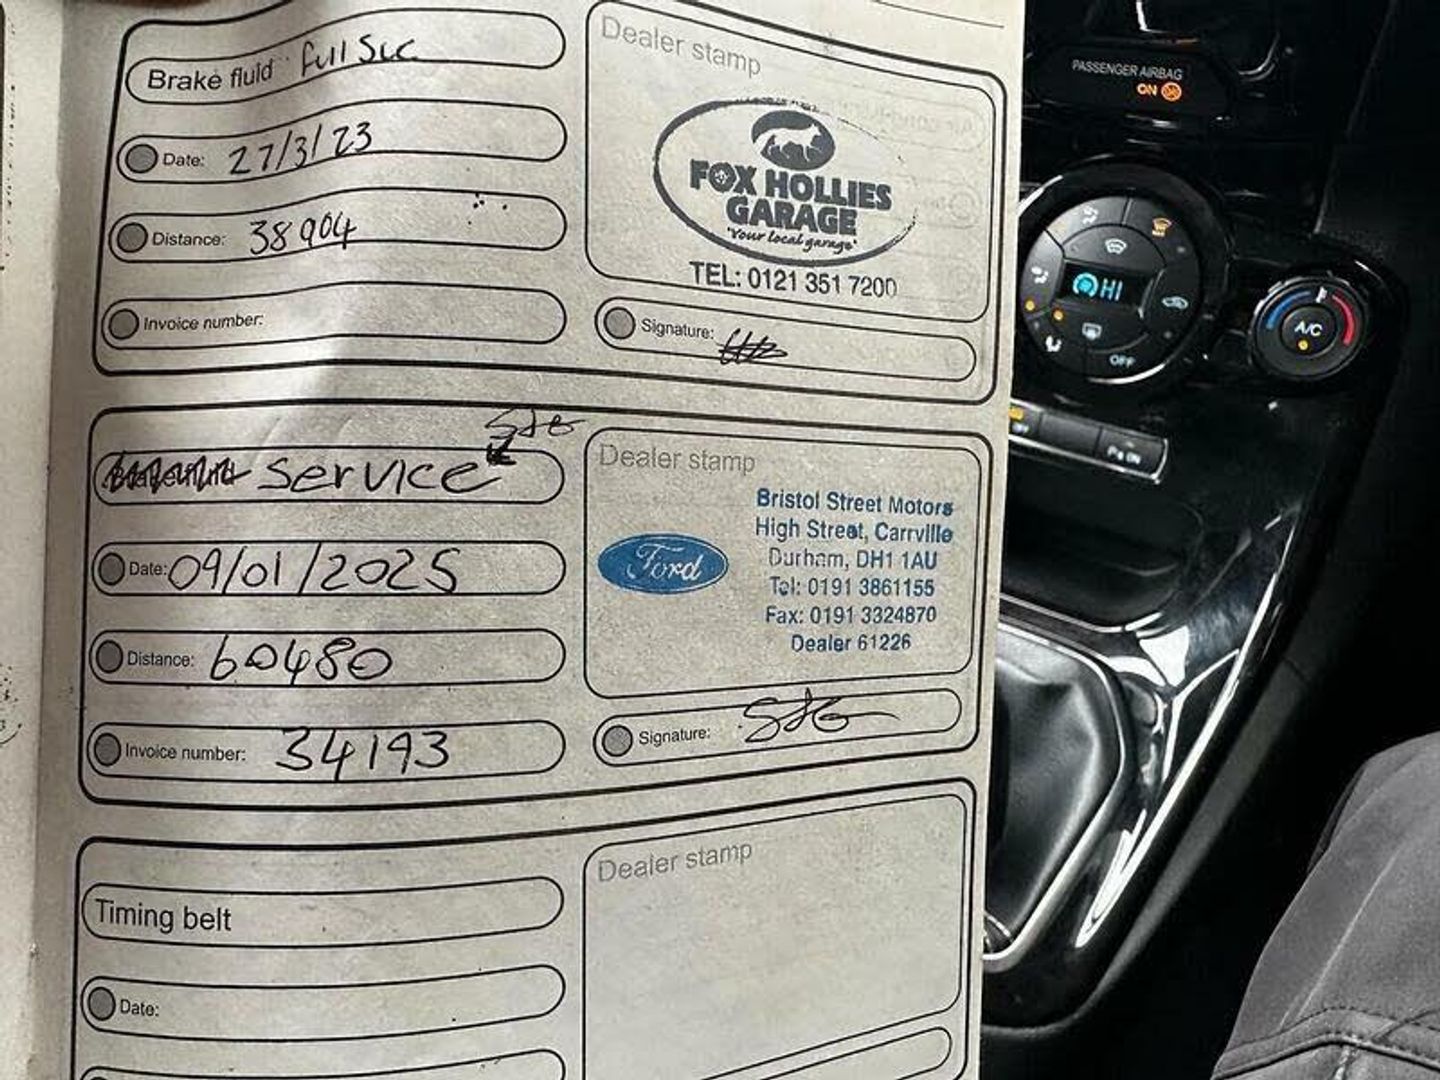 Brake fluid full svc
Date: 27/3/23
Distance: 38904
Invoice number:
Dealer stamp
FOX HOLLIES
GARAGE
'Your local garage'
TEL: 0121 351 7200
Signature:
service
Date: 09/01/2025
Distance: 60480
Invoice number: 34193
Dealer stamp
Ford
Bristol Street Motors
High Street, Carrville
Durham, DH1 1AU
Tel: 0191 3861155
Fax: 0191 3324870
Dealer 61226
Signature:
Timing belt
Date:
Dealer stamp
PASSENGER AIRBAG
ON
HI
OFF
A/C